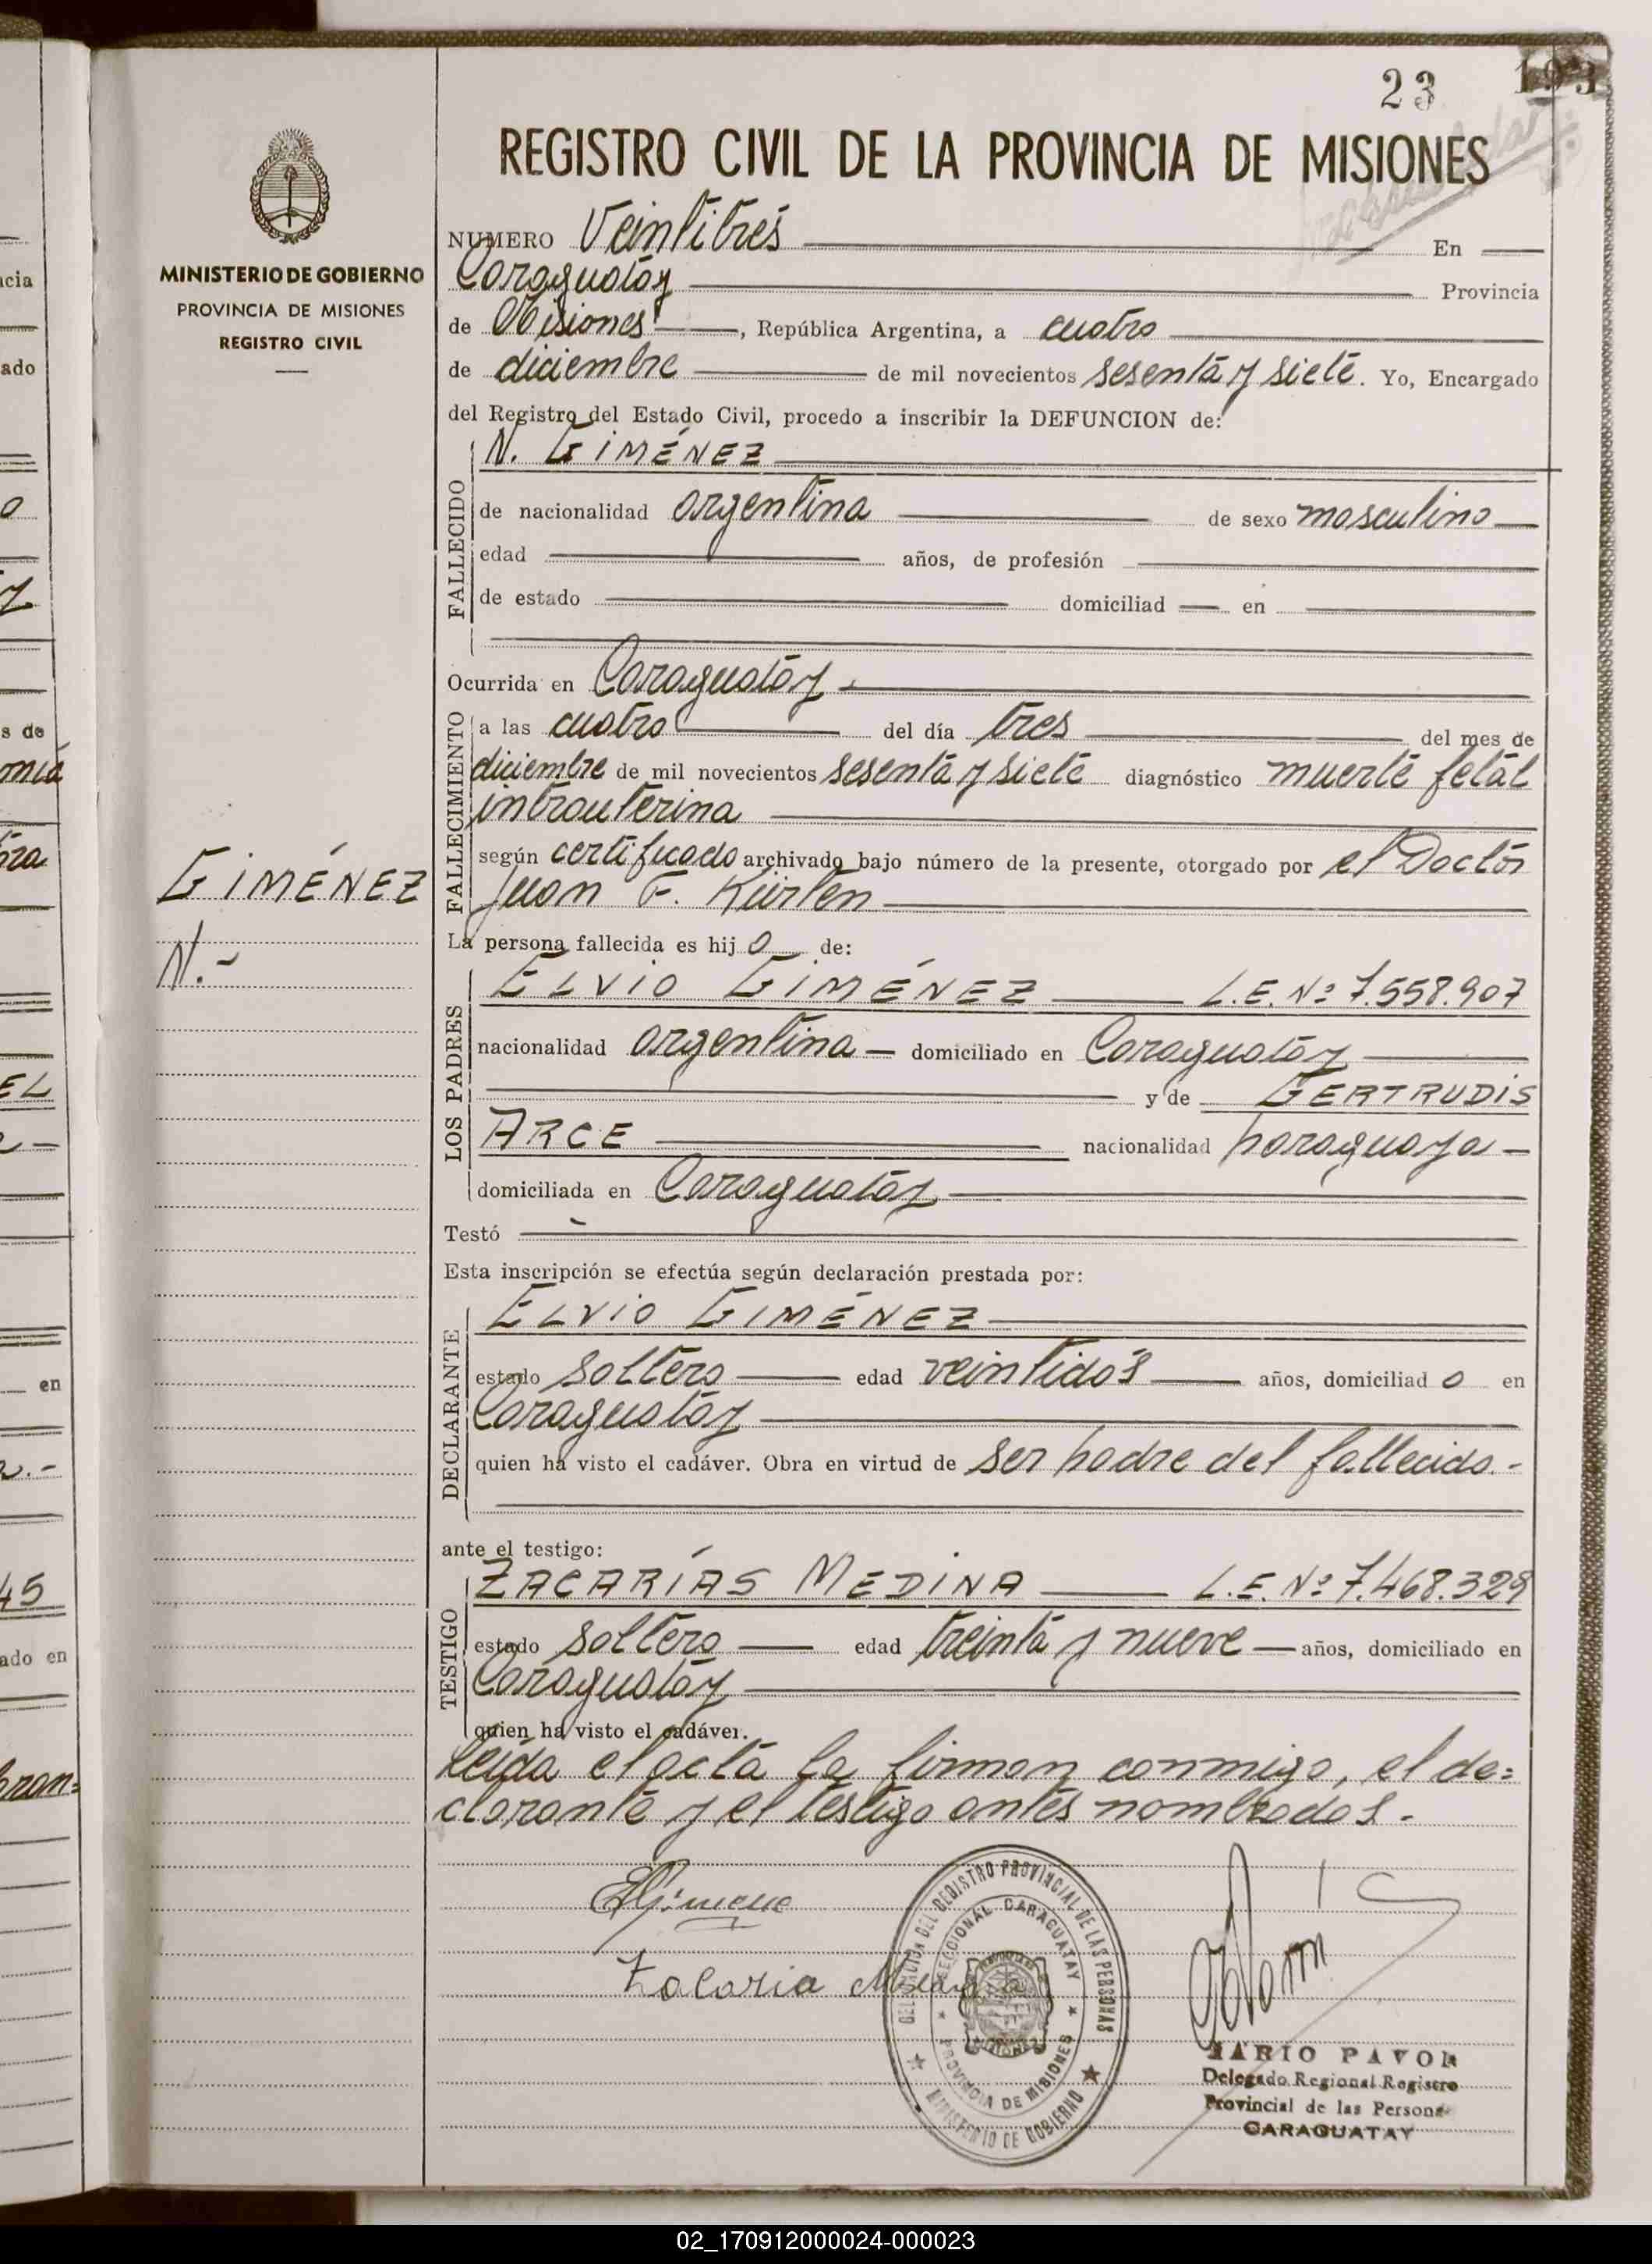 23
193
REGISTRO CIVIL DE LA PROVINCIA DE MISIONES
MINISTERIO DE GOBIERNO
PROVINCIA DE MISIONES
REGISTRO CIVIL
NUMERO Veintitrés En
Caraguatay Provincia
de Misiones, República Argentina, a cuatro
de diciembre de mil novecientos sesenta y siete. Yo, Encargado
del Registro del Estado Civil, procedo a inscribir la DEFUNCION de:
FALLECIDO
N. GIMÉNEZ
de nacionalidad argentina de sexo masculino
edad años, de profesión
de estado domiciliad en
Ocurrida en Caraguatay
FALLECIMIENTO
a las cuatro del día tres del mes de
diciembre de mil novecientos sesenta y siete diagnóstico muerte fetal
intrauterina
según certificado archivado bajo número de la presente, otorgado por el Doctor
Juan F. Kürten
GIMÉNEZ
N.-
La persona fallecida es hij o de:
LOS PADRES
ELVIO GIMÉNEZ L.E. Nº 7.558.907
nacionalidad argentina domiciliado en Caraguatay
y de GERTRUDIS
ARCE nacionalidad paraguaya
domiciliada en Caraguatay
Testó
Esta inscripción se efectúa según declaración prestada por:
DECLARANTE
ELVIO GIMÉNEZ
estado soltero edad veintidós años, domiciliad o en
Caraguatay
quien ha visto el cadáver. Obra en virtud de ser padre del fallecido.-
ante el testigo:
TESTIGO
ZACARÍAS MEDINA L.E. Nº 7.468.329
estado soltero edad treinta y nueve años, domiciliado en
Caraguatay
quien ha visto el cadáver.
Leída el acta la firman conmigo, el de=
clarante y el testigo antes nombrados.-
Zacaria Medina
DEL REGISTRO PROVINCIAL DE LAS PERSONAS
SECCIONAL CARAGUATAY
PROVINCIA DE MISIONES
MINISTERIO DE GOBIERNO
Delegado Regional Registro
Provincial de las Persona
CARAGUATAY
02_170912000024-000023